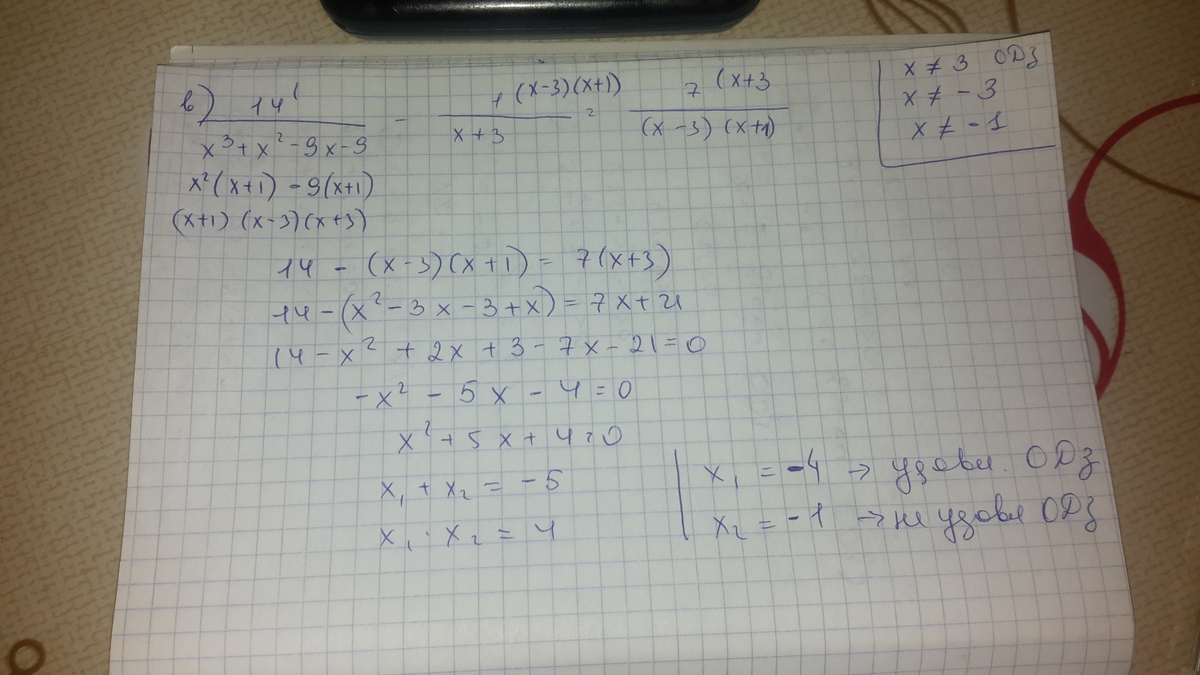 в) 14 ¹ / (x³ + x² - 9x - 9) - 1 (x-3)(x+1) / (x+3) = 7 (x+3 / ((x-3)(x+1))
x ≠ 3 ОДЗ
x ≠ -3
x ≠ -1
x²(x+1) - 9(x+1)
(x+1)(x-3)(x+3)
14 - (x-3)(x+1) = 7(x+3)
14 - (x² - 3x - 3 + x) = 7x + 21
14 - x² + 2x + 3 - 7x - 21 = 0
-x² - 5x - 4 = 0
x² + 5x + 4 = 0
x₁ + x₂ = -5
x₁ · x₂ = 4
x₁ = -4 → удовл. ОДЗ
x₂ = -1 → не удовл ОДЗ